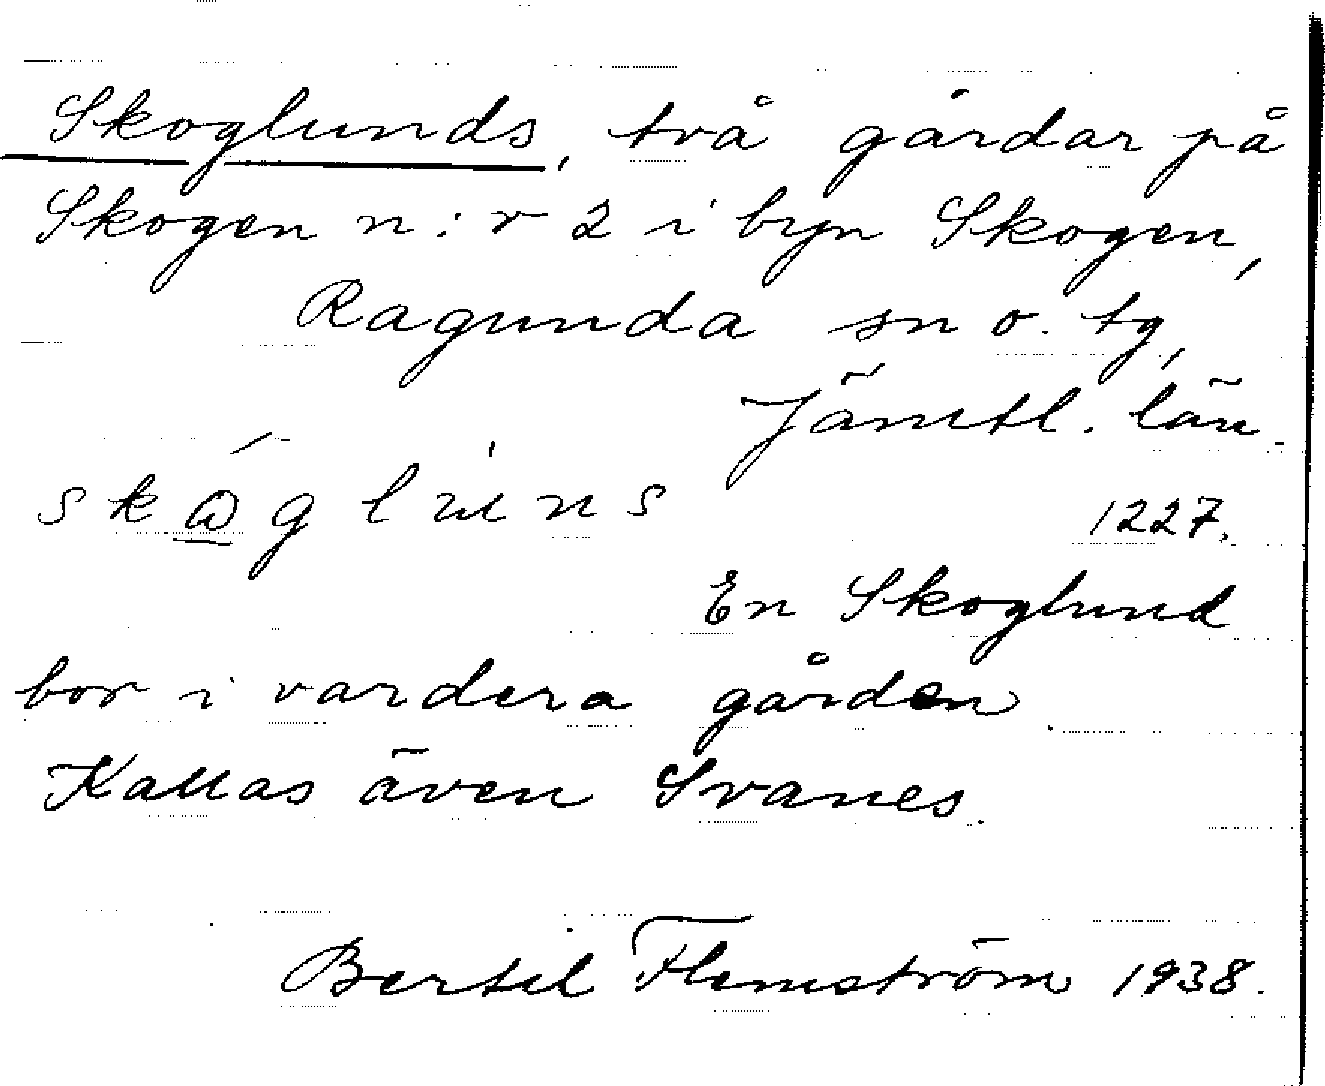 Skoglunds, två gårdar på
Skogen n:r 2 i byn Skogen,
Ragunda sn o. tg,
Jämtl. län.
1227.
En Skoglund
bor i vardera gården.
Kallas även Svanes.
Bertil Flemström 1938.